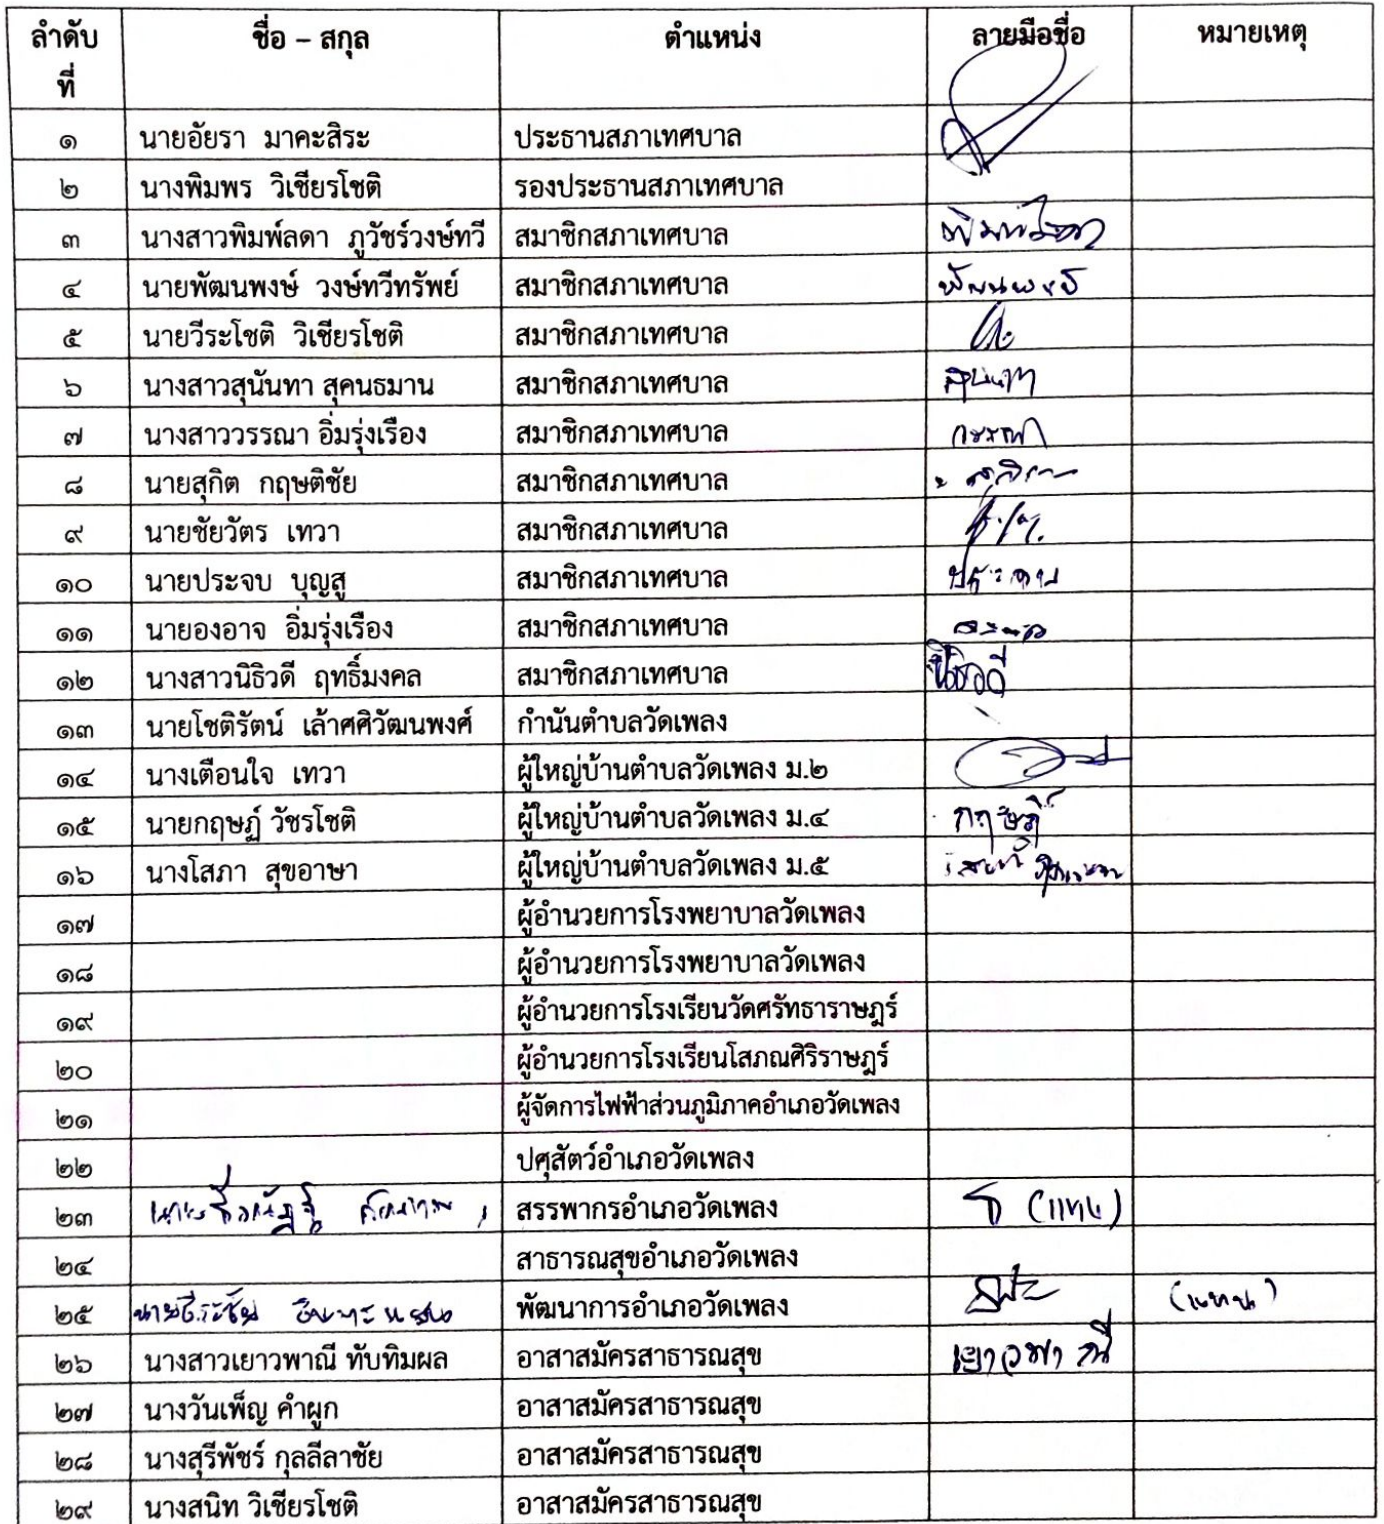 ลำดับที่ ชื่อ – สกุล ตำแหน่ง ลายมือชื่อ หมายเหตุ
๑ นายอัยรา มาคะสิระ ประธานสภาเทศบาล
๒ นางพิมพร วิเชียรโชติ รองประธานสภาเทศบาล
๓ นางสาวพิมพ์ลดา ภูวัชร์วงษ์ทวี สมาชิกสภาเทศบาล
๔ นายพัฒนพงษ์ วงษ์ทวีทรัพย์ สมาชิกสภาเทศบาล พัฒนพงษ์
๕ นายวีระโชติ วิเชียรโชติ สมาชิกสภาเทศบาล
๖ นางสาวสุนันทา สุคนธมาน สมาชิกสภาเทศบาล สุนันทา
๗ นางสาววรรณา อิ่มรุ่งเรือง สมาชิกสภาเทศบาล วรรณา
๘ นายสุกิต กฤษติชัย สมาชิกสภาเทศบาล
๙ นายชัยวัตร เทวา สมาชิกสภาเทศบาล
๑๐ นายประจบ บุญสู สมาชิกสภาเทศบาล ประจบ
๑๑ นายองอาจ อิ่มรุ่งเรือง สมาชิกสภาเทศบาล องอาจ
๑๒ นางสาวนิธิวดี ฤทธิ์มงคล สมาชิกสภาเทศบาล นิธิวดี
๑๓ นายโชติรัตน์ เล้าศศิวัฒนพงศ์ กำนันตำบลวัดเพลง
๑๔ นางเตือนใจ เทวา ผู้ใหญ่บ้านตำบลวัดเพลง ม.๒
๑๕ นายกฤษฏ์ วัชรโชติ ผู้ใหญ่บ้านตำบลวัดเพลง ม.๔ กฤษฏ์
๑๖ นางโสภา สุขอาษา ผู้ใหญ่บ้านตำบลวัดเพลง ม.๕ โสภา สุขอาษา
๑๗ ผู้อำนวยการโรงพยาบาลวัดเพลง
๑๘ ผู้อำนวยการโรงพยาบาลวัดเพลง
๑๙ ผู้อำนวยการโรงเรียนวัดศรัทธาราษฎร์
๒๐ ผู้อำนวยการโรงเรียนโสภณศิริราษฎร์
๒๑ ผู้จัดการไฟฟ้าส่วนภูมิภาคอำเภอวัดเพลง
๒๒ ปศุสัตว์อำเภอวัดเพลง
๒๓ สรรพากรอำเภอวัดเพลง (แทน)
๒๔ สาธารณสุขอำเภอวัดเพลง
๒๕ พัฒนาการอำเภอวัดเพลง (แทน)
๒๖ นางสาวเยาวพาณี ทับทิมผล อาสาสมัครสาธารณสุข เยาวพาณี
๒๗ นางวันเพ็ญ คำผูก อาสาสมัครสาธารณสุข
๒๘ นางสุรีพัชร์ กุลลีลาชัย อาสาสมัครสาธารณสุข
๒๙ นางสนิท วิเชียรโชติ อาสาสมัครสาธารณสุข